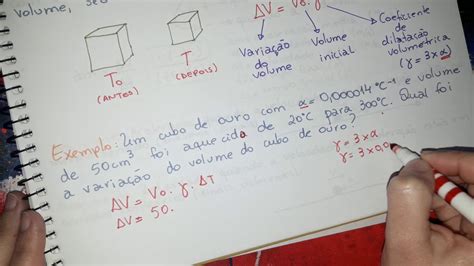 Volume, seu
ΔV = V₀ · γ ·
T₀
(ANTES)
T
(DEPOIS)
Variação
do
volume
Volume
inicial
Coeficiente
de
dilatação
volumétrica
(γ = 3 x α)
Exemplo: Um cubo de ouro com α = 0,000014 °C⁻¹ e volume
de 50cm³ foi aquecido de 20°C para 300°C. Qual foi
a variação do volume do cubo de ouro?
γ = 3 x α
γ = 3 x 0,0
ΔV = V₀ . γ . ΔT
ΔV = 50.